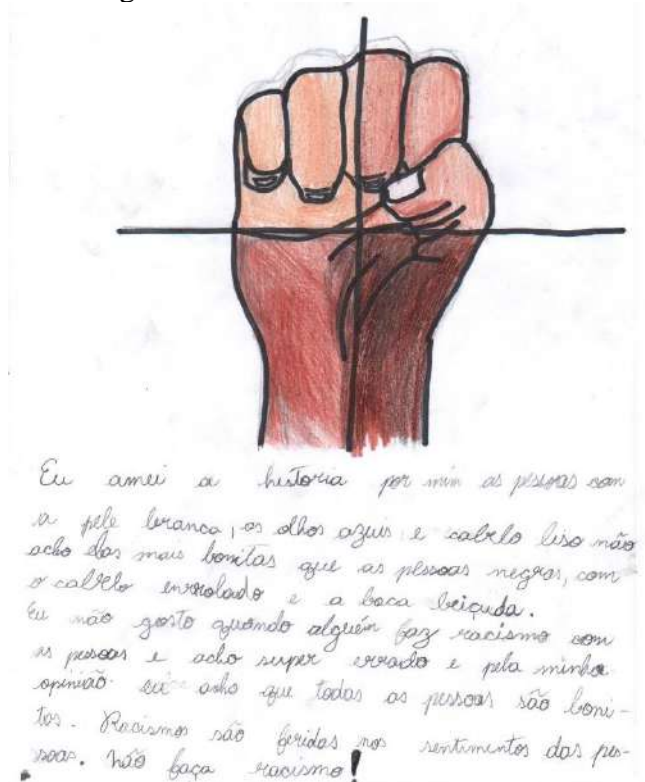 Eu amei a historia por mim as pessoas com
a pele branca, os olhos azuis e cabelo liso não
acho elas mais bonitas que as pessoas negras, com
o cabelo enrolado e a boca beiçuda.
Eu não gosto quando alguém faz racismo com
as pessoas e acho super errado e pela minha
opinião eu acho que todas as pessoas são boni-
tas. Racismos são feridas nos sentimentos das pes-
soas. Não faça racismo!